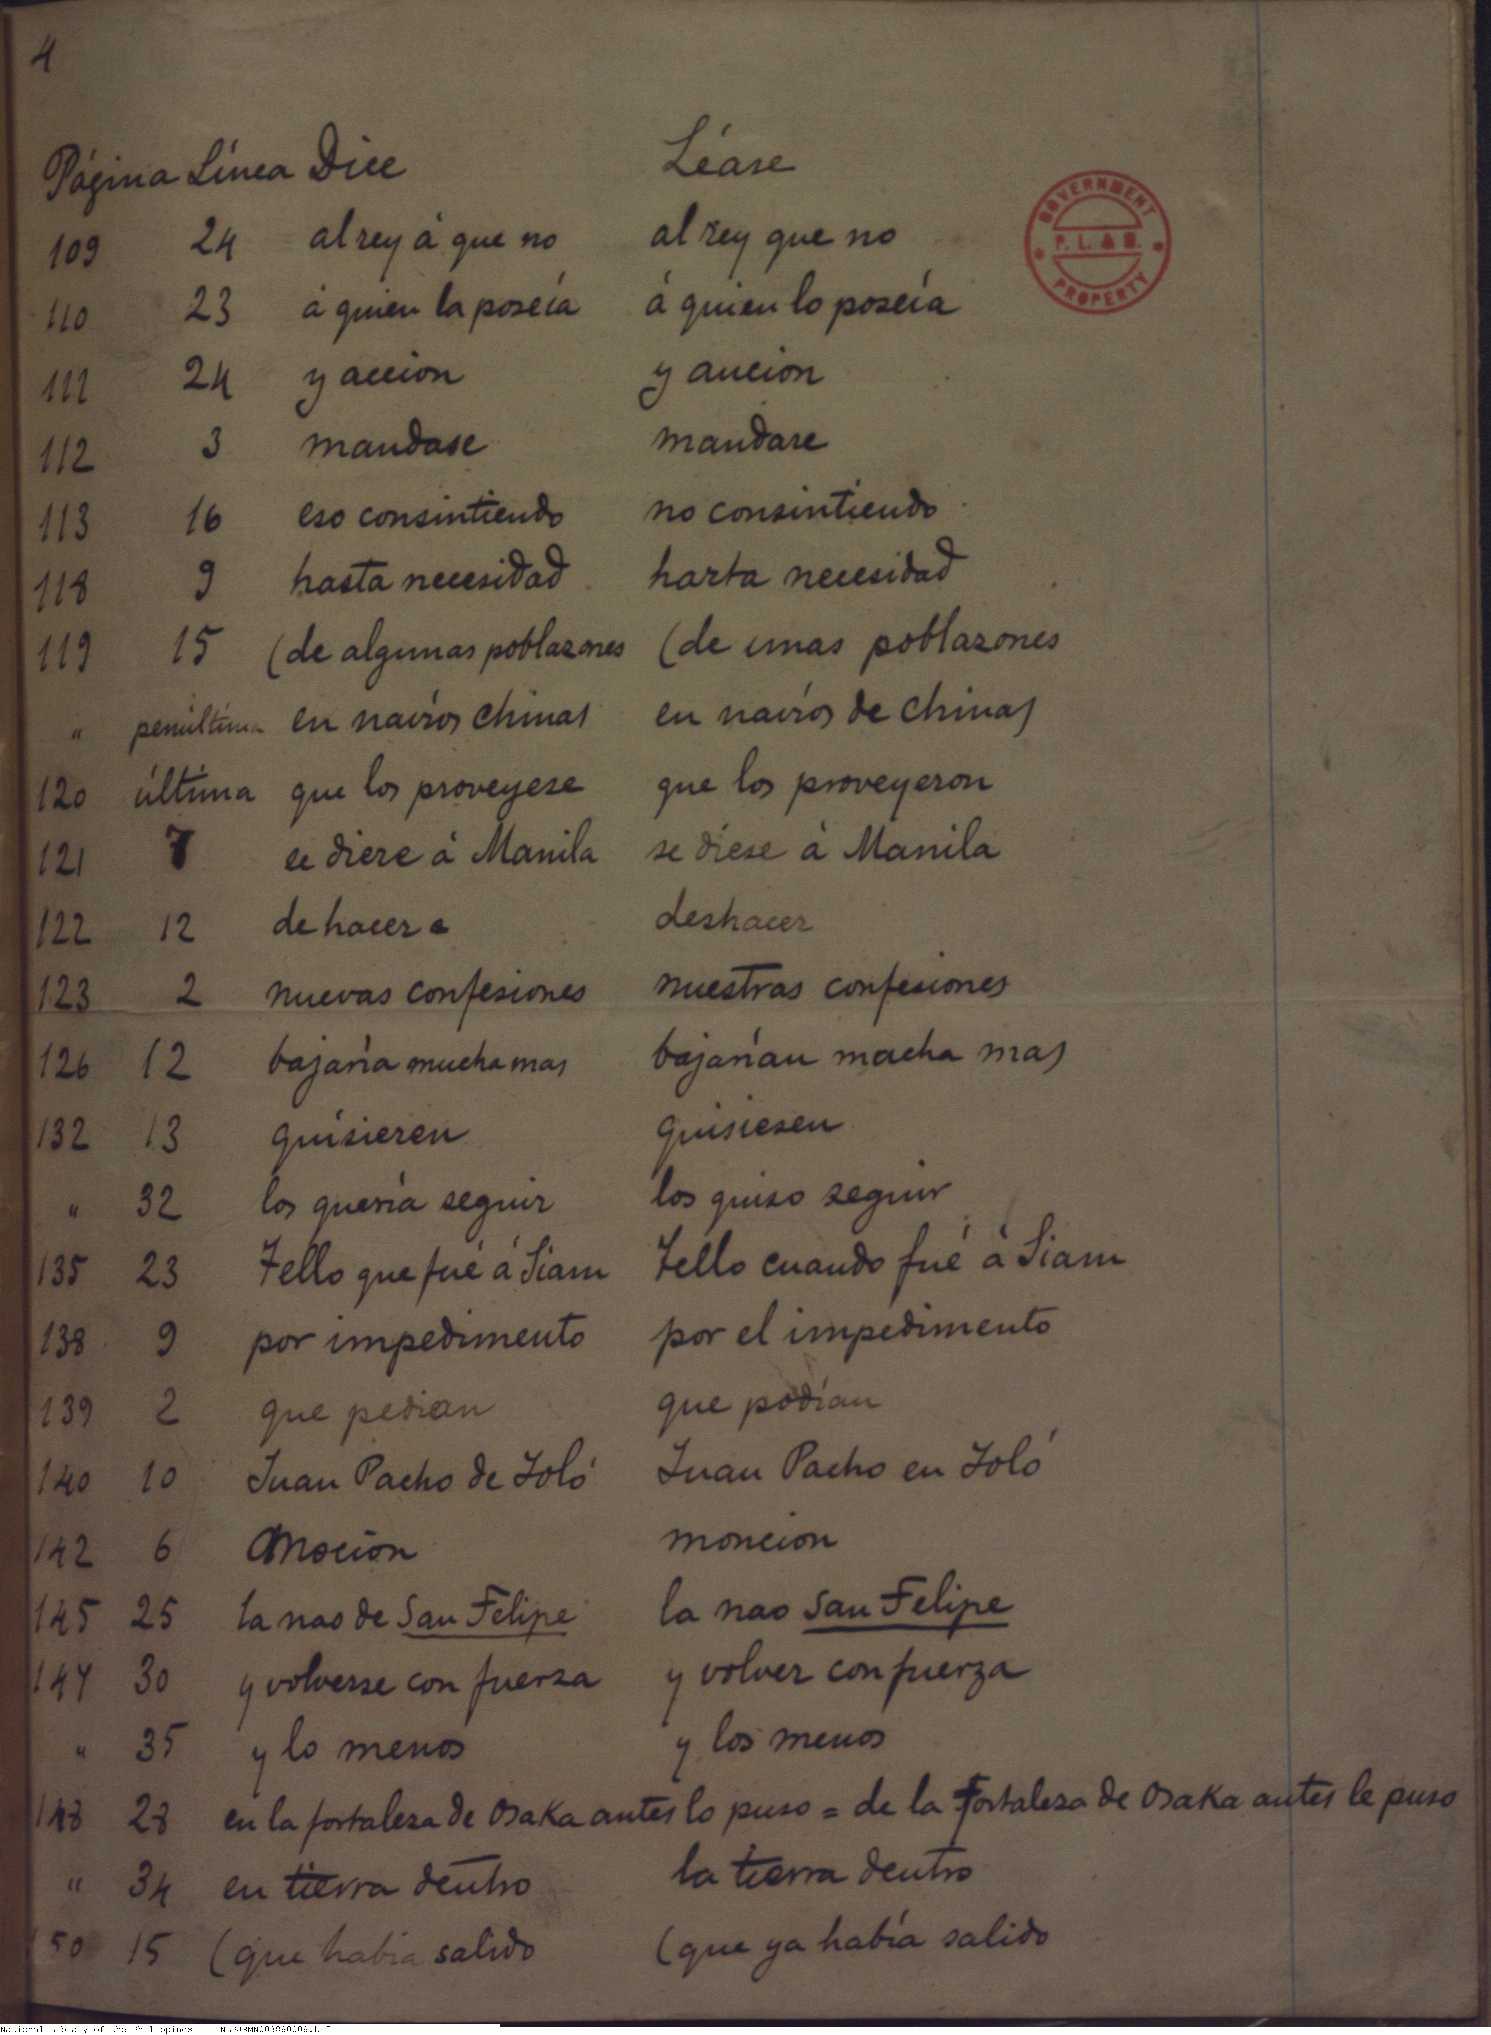 4
Página Línea Dice Léase
109 24 al rey á que no al rey que no
110 23 á quien la poseía á quien lo poseía
111 24 y accion y aucion
112 3 mandase mandare
113 16 eso consintiendo no consintiendo
118 9 hasta necesidad harta necesidad
119 15 (de algunas poblazones (de unas poblazones
" penúltima en navíos chinas en navíos de chinas
120 última que los proveyese que los proveyeron
121 7 se diere á Manila se diese á Manila
122 12 de hacer deshacer
123 2 nuevas confesiones nuestras confesiones
126 12 bajaría mucha mas bajarían mucha mas
132 13 quisieren quisiesen
" 32 los quería seguir los quiso seguir
135 23 Tello que fué á Siam Tello cuando fué á Siam
138 9 por impedimento por el impedimento
139 2 que pedian que podían
140 10 Juan Pacho de Joló Juan Pacho en Joló
142 6 mocion moncion
145 25 la nao de San Felipe la nao San Felipe
147 30 y volverse con fuerza y volver con fuerza
" 35 y lo menos y los menos
148 28 en la fortaleza de Osaka antes lo puso = de la fortaleza de Osaka antes le puso
" 34 en tierra dentro la tierra dentro
150 15 (que habia salido (que ya había salido
GOVERNMENT
P. L. & M.
PROPERTY